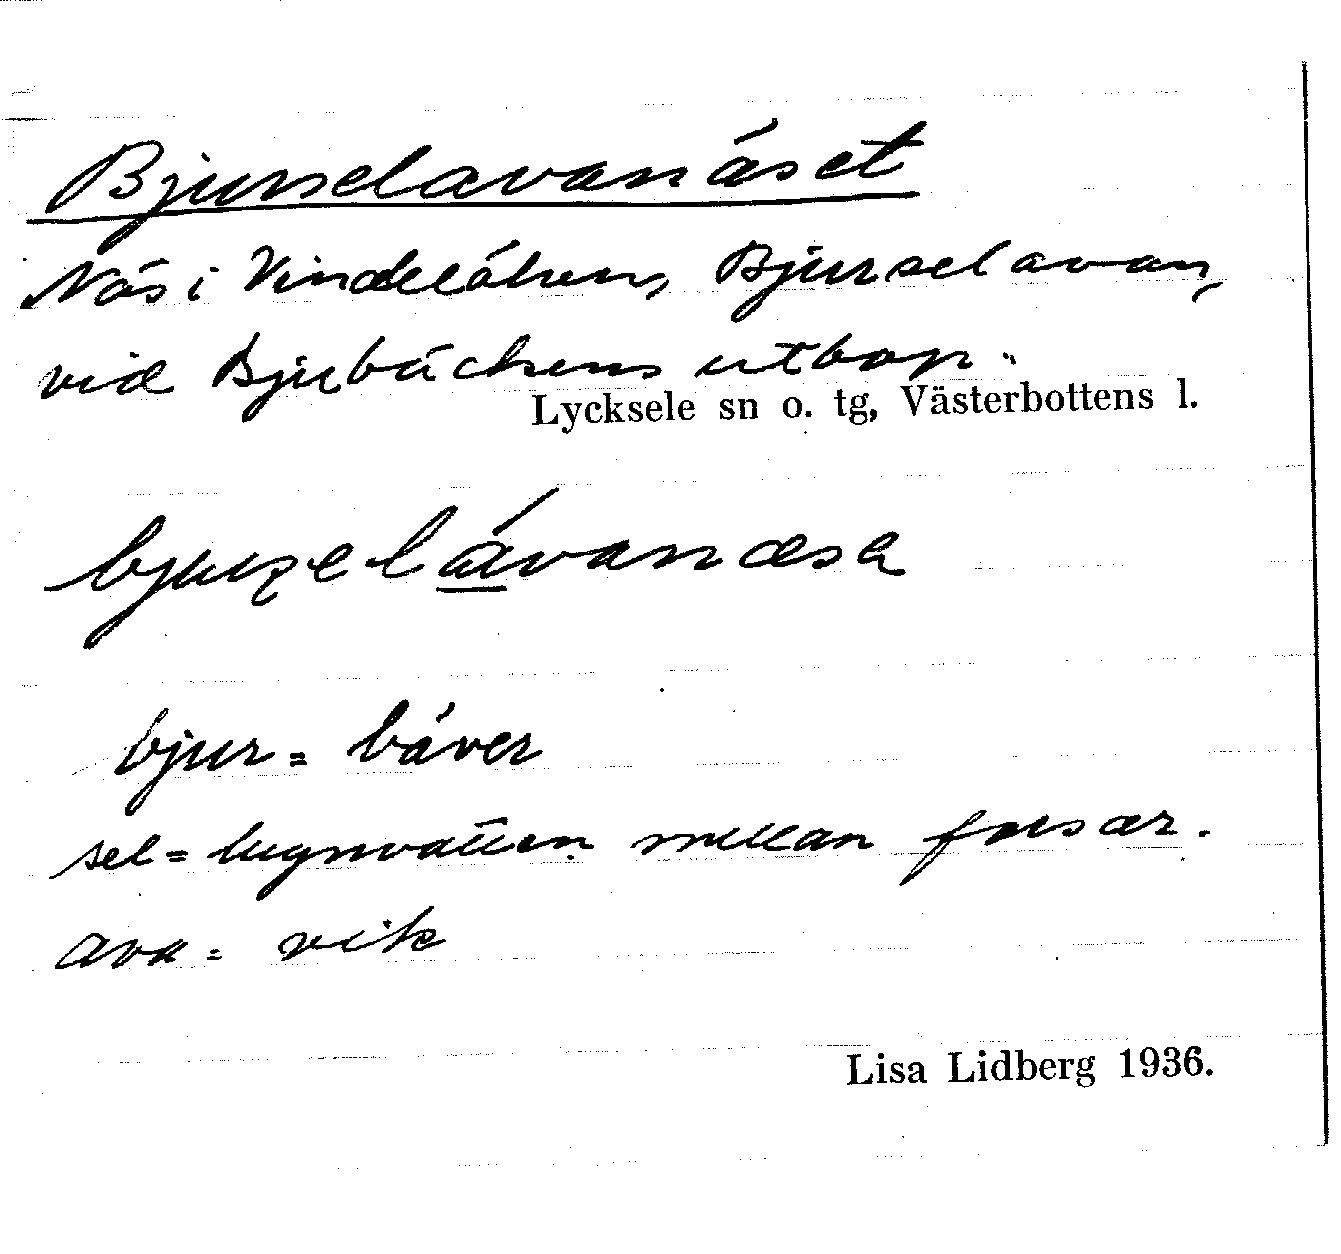 Bjurselavanäset
Näs i Vindelälven, Bjurselavan,
vid Bjubäckens utlopp.
Lycksele sn o. tg, Västerbottens l.
bjur = bäver
sel = lugnvatten mellan forsar.
ava = vik
Lisa Lidberg 1936.